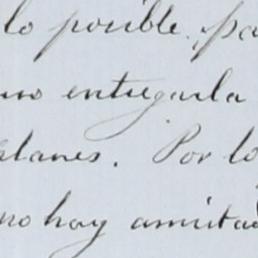 lo posible. pa
uno entregarla
planes. Por lo
no hay amistad